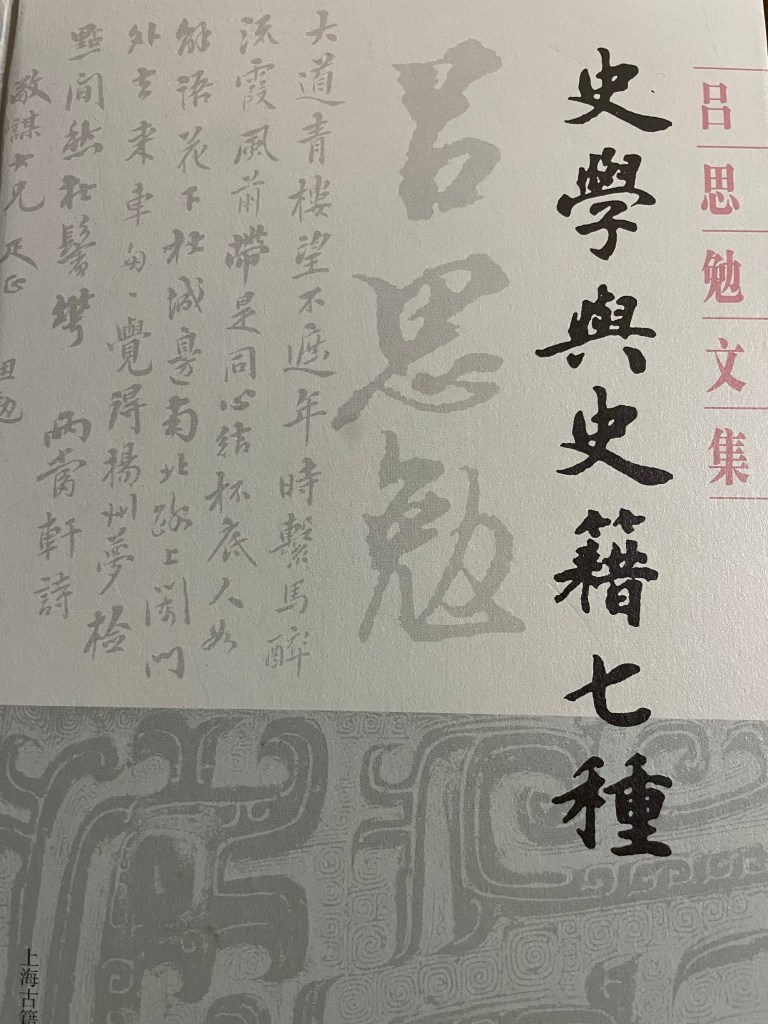 吕思勉文集
史學與史籍七種
吕思勉
大道青樓望不遮年時繫馬醉
流霞風前帶是同心結杯底人如
解語花下杜城邊南北路上闌門
外去來車匆〻覺得揚州夢檢
點閒愁在鬢華 兩當軒詩
敬謀兄正
思勉
上海古籍